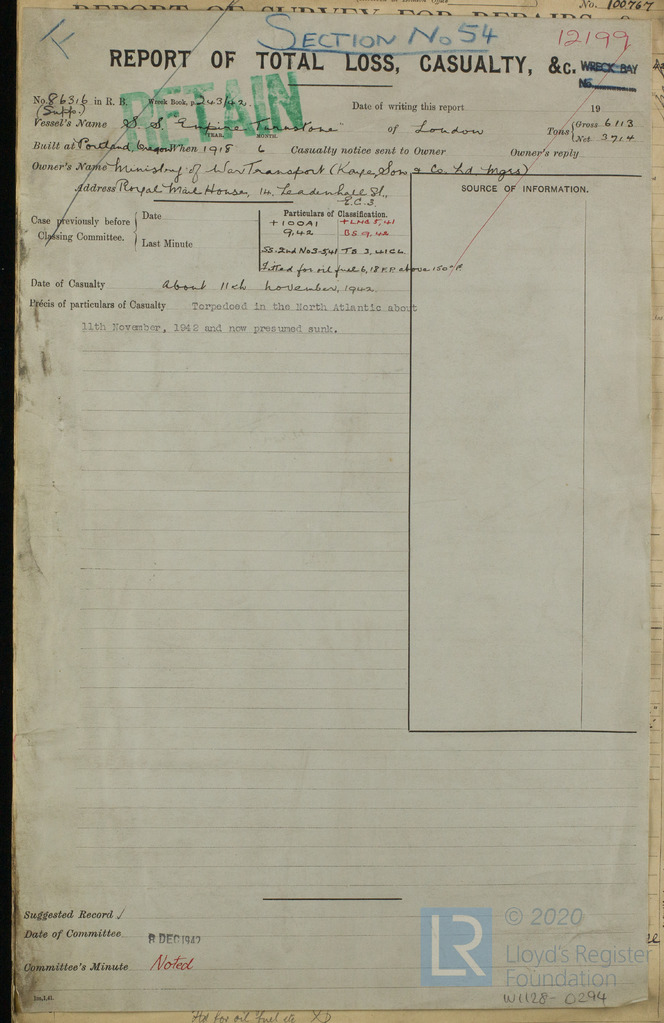 REPORT OF SURVEY FOR REPAIRS, &
No. 100767
SECTION No 54
12199
REPORT OF TOTAL LOSS, CASUALTY, &c.
WRECK BAY
No.
RETAIN
No. 86316 in R. B. Wreck Book, p. 243/42.
(Supp.)
Date of writing this report 19
Vessel's Name S.S. "Empire Turnstone" of London
Tons Gross 6113
Net 3714
YEAR. MONTH.
Built at Portland, Oregon When 1918 6 Casualty notice sent to Owner Owner's reply
Owner's Name Ministry of War Transport (Kaye, Son & Co. Ld. Mgrs)
Address Royal Mail House, 14, Leadenhall St.,
E.C.3.
SOURCE OF INFORMATION.
Case previously before Classing Committee.
Date
Last Minute
Particulars of Classification.
+100A1 +LMC 5,41
9,42 BS 9,42
SS. 2nd No3-5,41 TS 3,41CL
Fitted for oil fuel 6,18 F.P. above 150°F.
Date of Casualty About 11th November, 1942.
Précis of particulars of Casualty Torpedoed in the North Atlantic about
11th November, 1942 and now presumed sunk.
Suggested Record ✓
Date of Committee 8 DEC 1942
Committee's Minute Noted
LR
© 2020
Lloyd's Register
Foundation
W1128-0294
Ftd for oil fuel etc